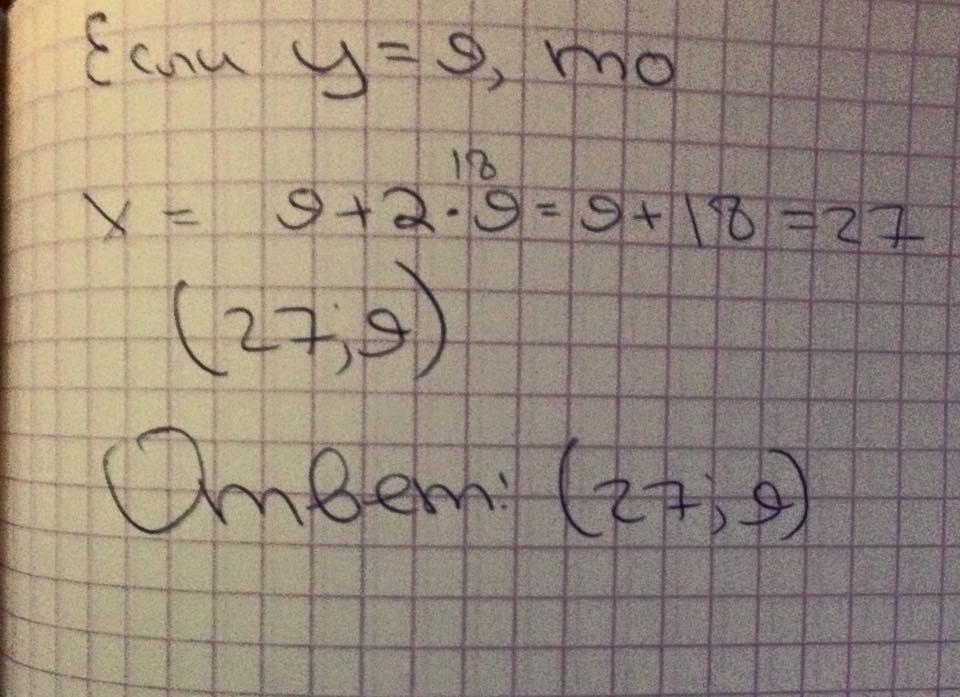 Если y = 9, то
18
x = 9 + 2 · 9 = 9 + 18 = 27
(27; 9)
Ответ: (27; 9)